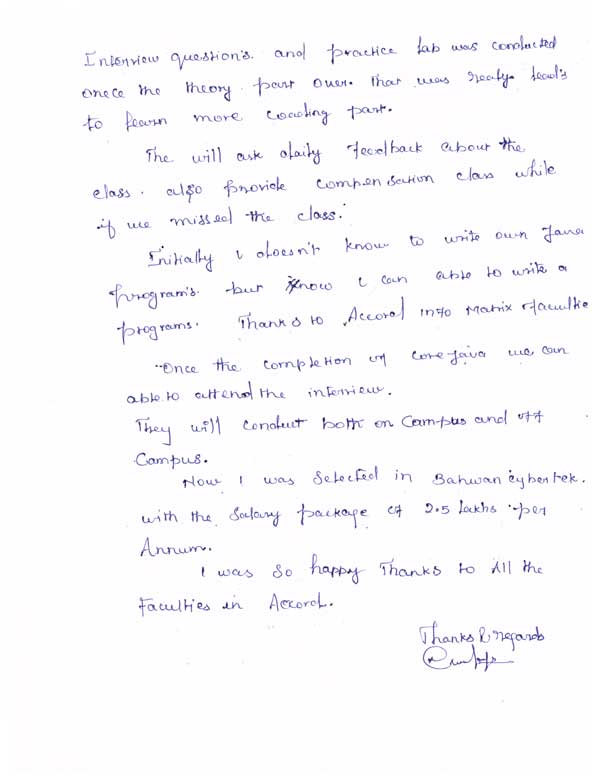 Interview question's. and practice lab was conducted
onece the theory part over. that was really lead's
to learn more coading part.
The will ask daily feedback about the
class. also provide compensation class while
if we missed the class.
Initially i doesn't know to write own Java
program's. but know i can able to write a
programs. Thanks to Accord info Matrix facultie
"Once the completion of core-java we can
able to attend the interview.
They will conduct both on Campus and off
Campus.
Now I was selected in Bahwan cybertek.
with the salary package of 2.5 Lakhs per
Annum.
I was so happy Thanks to All the
Faculties in Accord.
Thanks & regards